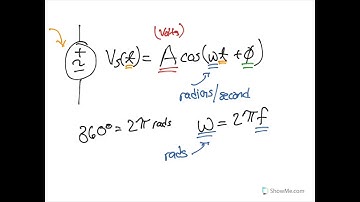 (Volts)
Vs(t) = A cos(ωt + ϕ)
radians/second
360° = 2π rads
ω = 2πf
rads
ShowMe.com